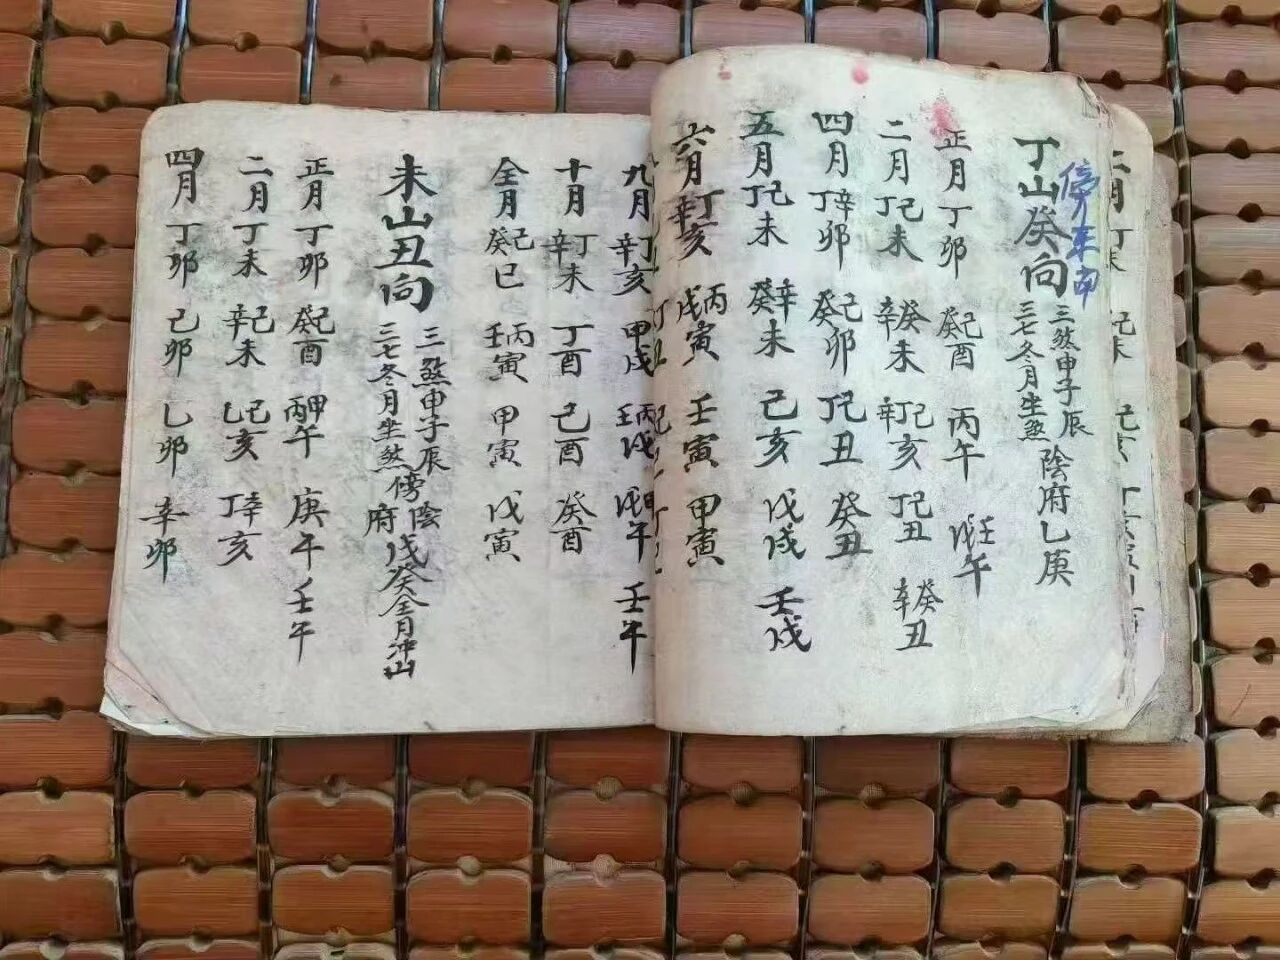 丁山癸向
三煞申子辰
三七冬月坐煞
陰府乙庚
正月丁卯 己癸酉 丙午 壬戊午
二月丁己未 癸辛未 己丁辛亥 己丁丑 癸辛丑
四月辛丁卯 己癸卯 己丁丑 癸丑
五月己丁未 辛癸未 己亥 戊戌 壬戌
六月丁辛亥 丙戊寅 壬寅 甲寅
九月丁辛亥 甲戌 丙壬戌 甲戊午 壬午
十月丁辛未 丁酉 己酉 癸酉
全月己癸巳 丙壬寅 甲寅 戊寅
未山丑向
三煞申子辰
三七冬月坐煞
傍陰府戊癸全月冲山
正月丁卯 己癸酉 甲丙午 庚午 壬午
二月丁未 己辛未 己乙亥 辛丁亥
四月丁卯 己卯 乙卯 辛卯